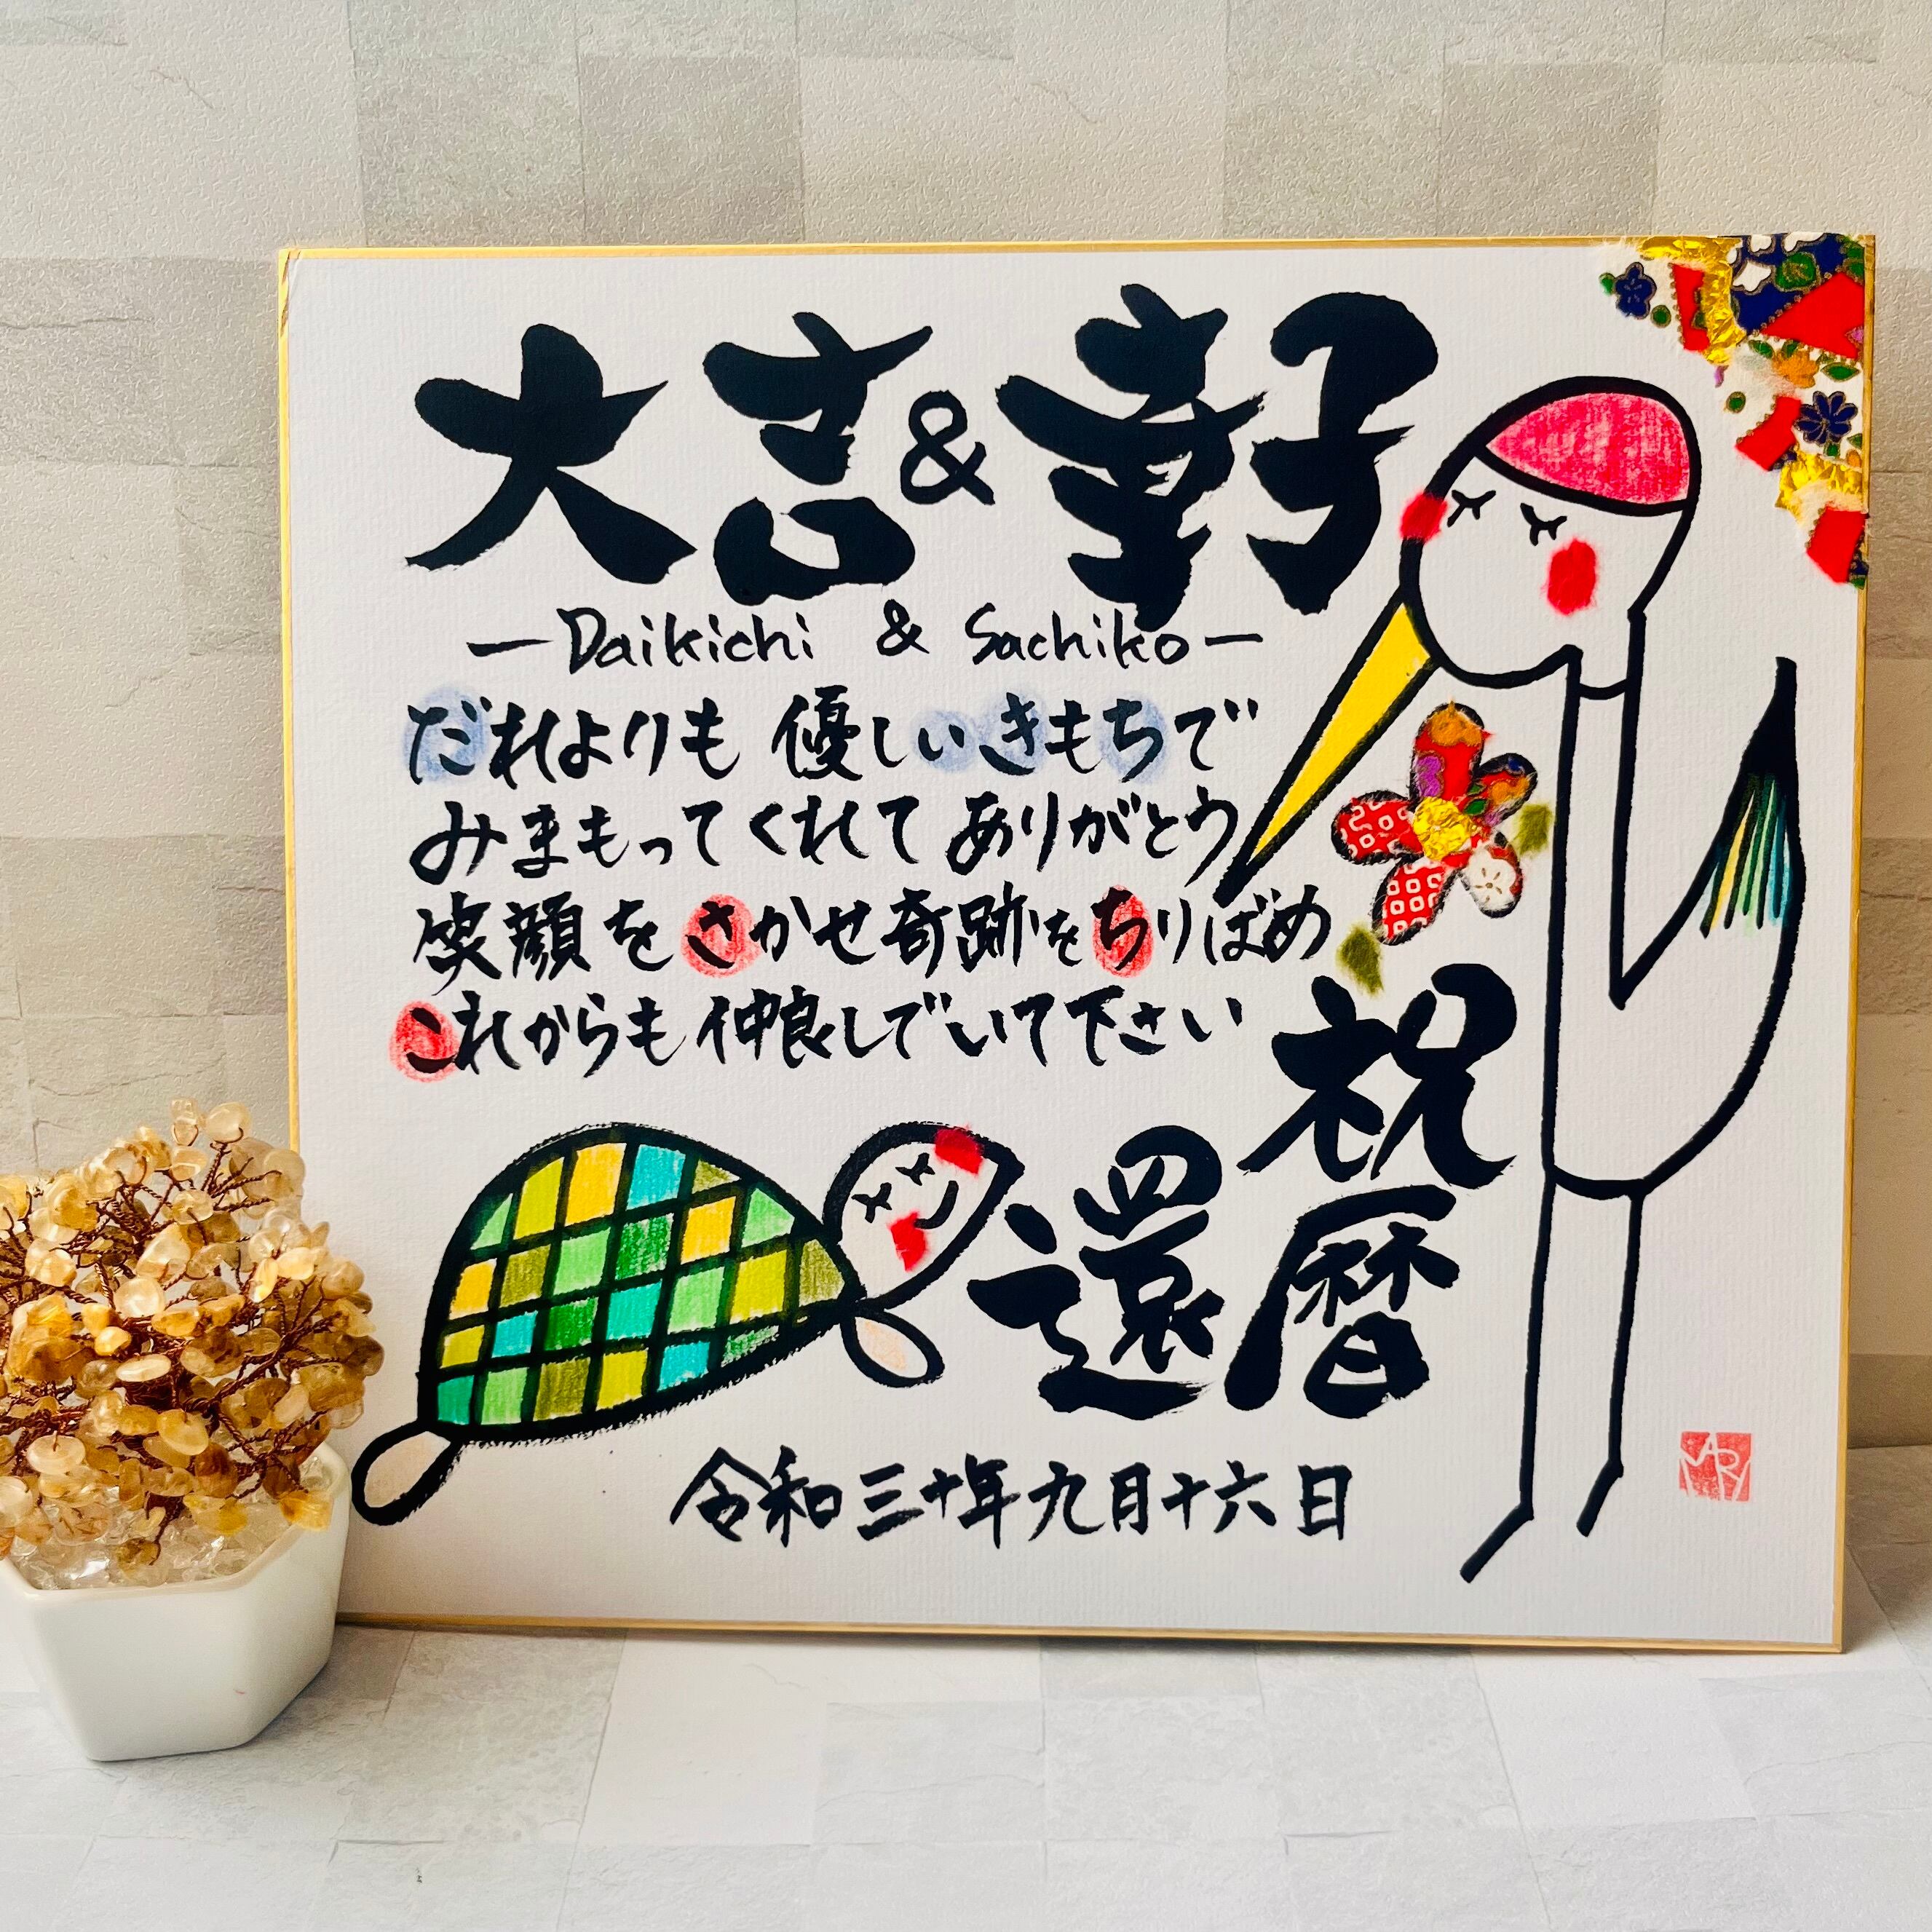 大吉&幸子
—Daikichi & Sachiko—
だれよりも 優しいきもちで
みまもってくれて ありがとう
笑顔をさかせ奇跡をちりばめ
これからも仲良しでいて下さい
祝
還暦
令和三十年九月十六日
MARI